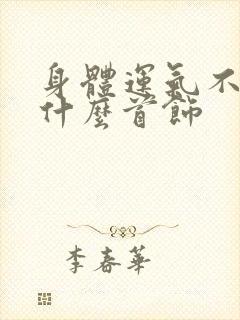 身體運氣不
什麼首飾
李春華